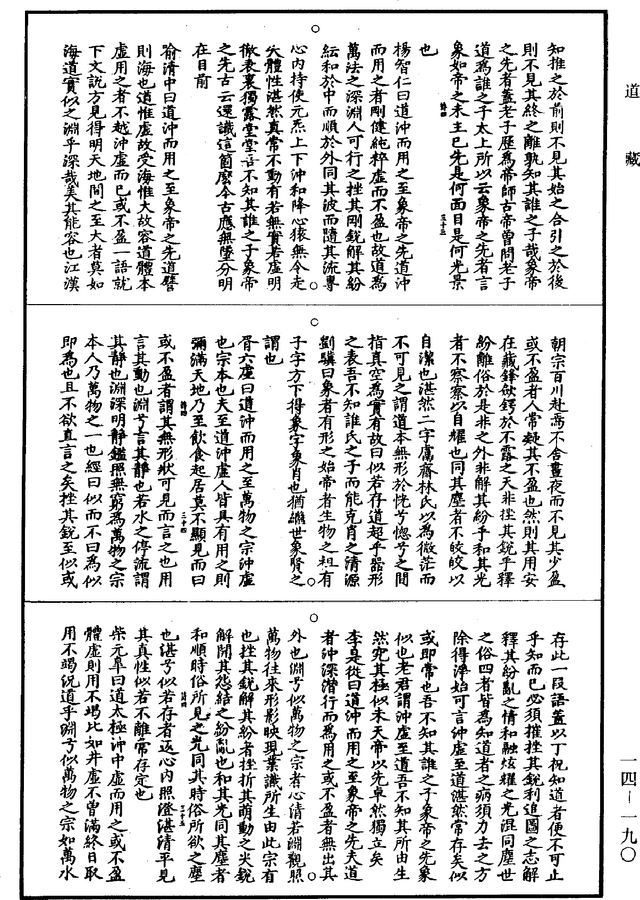 道藏
知推之於前則不見其始之合引之於後
則不見其終之離孰知其誰之子哉象帝
之先者蓋老子歷爲帝師古帝曾問老子
道爲誰之子太上所以云象帝之先者言
象如帝之未主已先是何面目是何光景
也
楊智仁曰道沖而用之至象帝之先道沖
而用之者剛健純粹虛而不盈也故道爲
萬法之深淵人可行之挫其剛銳解其紛
紜和於中而順於外同其波而隨其流專
心內持使元炁上下沖和降心猿無令走
失體性湛然真常不動有若無實若虛明
徹表裏獨露堂堂吾不知其誰之子象帝
之先古云還識這箇麽今古應無墜分明
在目前
喻清中曰道沖而用之至象帝之先道譬
則海也道惟虛故受海惟大故容道體本
虛用之者不越沖虛而已或不盈一語就
下文說方見得明天地間之至大者莫如
海道實似之淵乎深哉美其能容也江漢
朝宗百川赴焉不合晝夜而不見其少盈
或不盈者人常疑其不盈也然則其用安
在藏鋒斂鍔於不露之天非挫其銳乎釋
紛離俗於是非之外非解其紛乎和其光
者不察察以自耀也同其塵者不皎皎以
自潔也湛然二字鬳齋林氏以為微茫而
不可見之謂道本無形於恍兮惚兮之間
指真空為實有故曰似若存道超乎器形
之表吾不知誰氏之子而能克肖之清源
劉驥曰象者有形之始帝者生物之祖有
子字方下得象字象肖也猶繼世象賢之
謂也
胥六虛曰道沖而用之至萬物之宗沖虛
也宗本也夫至道沖虛人皆具有用之則
彌滿天地乃至飲食起居莫不顯見而曰
或不盈者謂其無形狀可見而言之也用
言其動也淵兮言其靜也若水之停流謂
其靜也淵深明靜鑑照無窮爲萬物之宗
本人乃萬物之一也經曰似而不曰爲似
即爲也且不欲直言之矣挫其銳至似或
存此一段語蓋以丁祝知道者便不可止
乎知而已必須摧挫其銳利進圖之志解
釋其紛亂之情和融炫耀之光混同塵世
之俗四者皆爲知道者之病須力去之方
除得淨始可言沖虛至道湛然常存矣似
或即常也吾不知其誰之子象帝之先象
似也老君謂沖虛至道吾不知其所由生
然究其極似未天帝以先卓然獨立矣
李是從曰道沖而用之至象帝之先夫道
者沖深潛行而爲用之或不盈者無出其
外也淵兮似萬物之宗者心清若淵觀照
萬物往來形影映現業識所生由此宗有
也挫其銳解其紛者挫折其萌動之尖銳
解開其惉結之紛亂也和其光同其塵者
和順時俗所見之光同其時俗所欲之塵
也湛兮似若存者返心內照澄湛清平見
其真性似若不離常存定也
柴元皐曰道太極沖中虛而用之或不盈
體虛則用不竭比如井虛不曾滿終日取
用不竭況道乎淵兮似萬物之宗如萬水
一四—一九〇